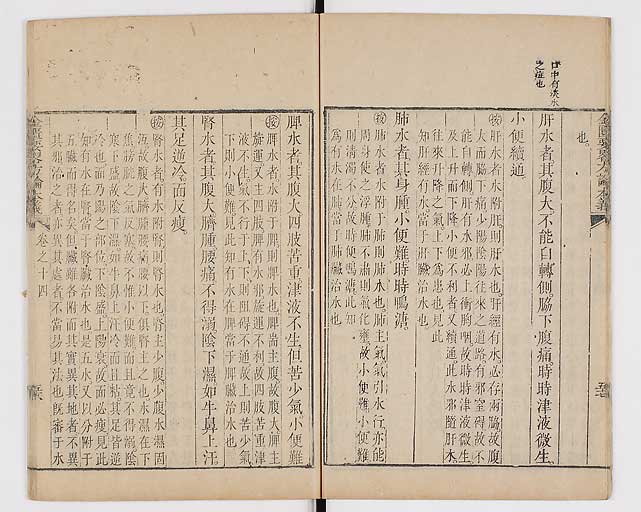 也
肝水者其腹大不能自轉側脇下腹痛時時津液微生
小便續通
按肝水者水附肝則肝水也肝經有水必存兩脇故腹
大而脇下痛少陽陰陽往來之道路有邪窒碍故不
能自轉側肝有水邪必上衝胸咽故時時津液微生
及上升而下降小便不利者又續通此水邪隨肝木
往來升降之氣上下爲患也見此
知肝經有水當于肝臟治水也
肺水者其身腫小便難時時鴨溏
按肺水者水附于肺則肺水也肺主氣氣引水行亦能
周身使之浮腫肺不肅則氣化壅故小便難小便難
則清濁不分故時時便鴨溏此知
爲有水在肺當于肺臟治水也
脾水者其腹大四肢苦重津液不生但苦少氣小便難
按脾水者水附于脾則脾水也脾專主腹故腹大脾主
旋運又主四肢脾有水邪旋運不利故四肢苦重津
液不生氣不行于上下則阻碍不通故上則苦少氣
下則小便難見此知有水在脾當于脾臟治水也
腎水者其腹大臍腫腰痛不得溺陰下濕如牛鼻上汗
其足逆冷面反瘦
按腎水者有水附腎則腎水也腎主少腹少腹水濕固
冱故腹大臍腫腰痛腰以下俱腎主之也水濕在下
焦膀胱之氣反塞故不惟小便難而且竟不得溺陰
寒下盛故陰下濕如牛鼻上汗冷而且粘其足皆逆
冷也面乃陽之部位下陰盛上陽衰故面必瘦見此
知有水在腎當于腎臟治水也是五水又以分附于
五臟而得名矣但臟雖各附而其實異其地者不異
其邪治之者亦異其處者不當易其法也旣審于水
卷之十四
口中有淡水
之症也